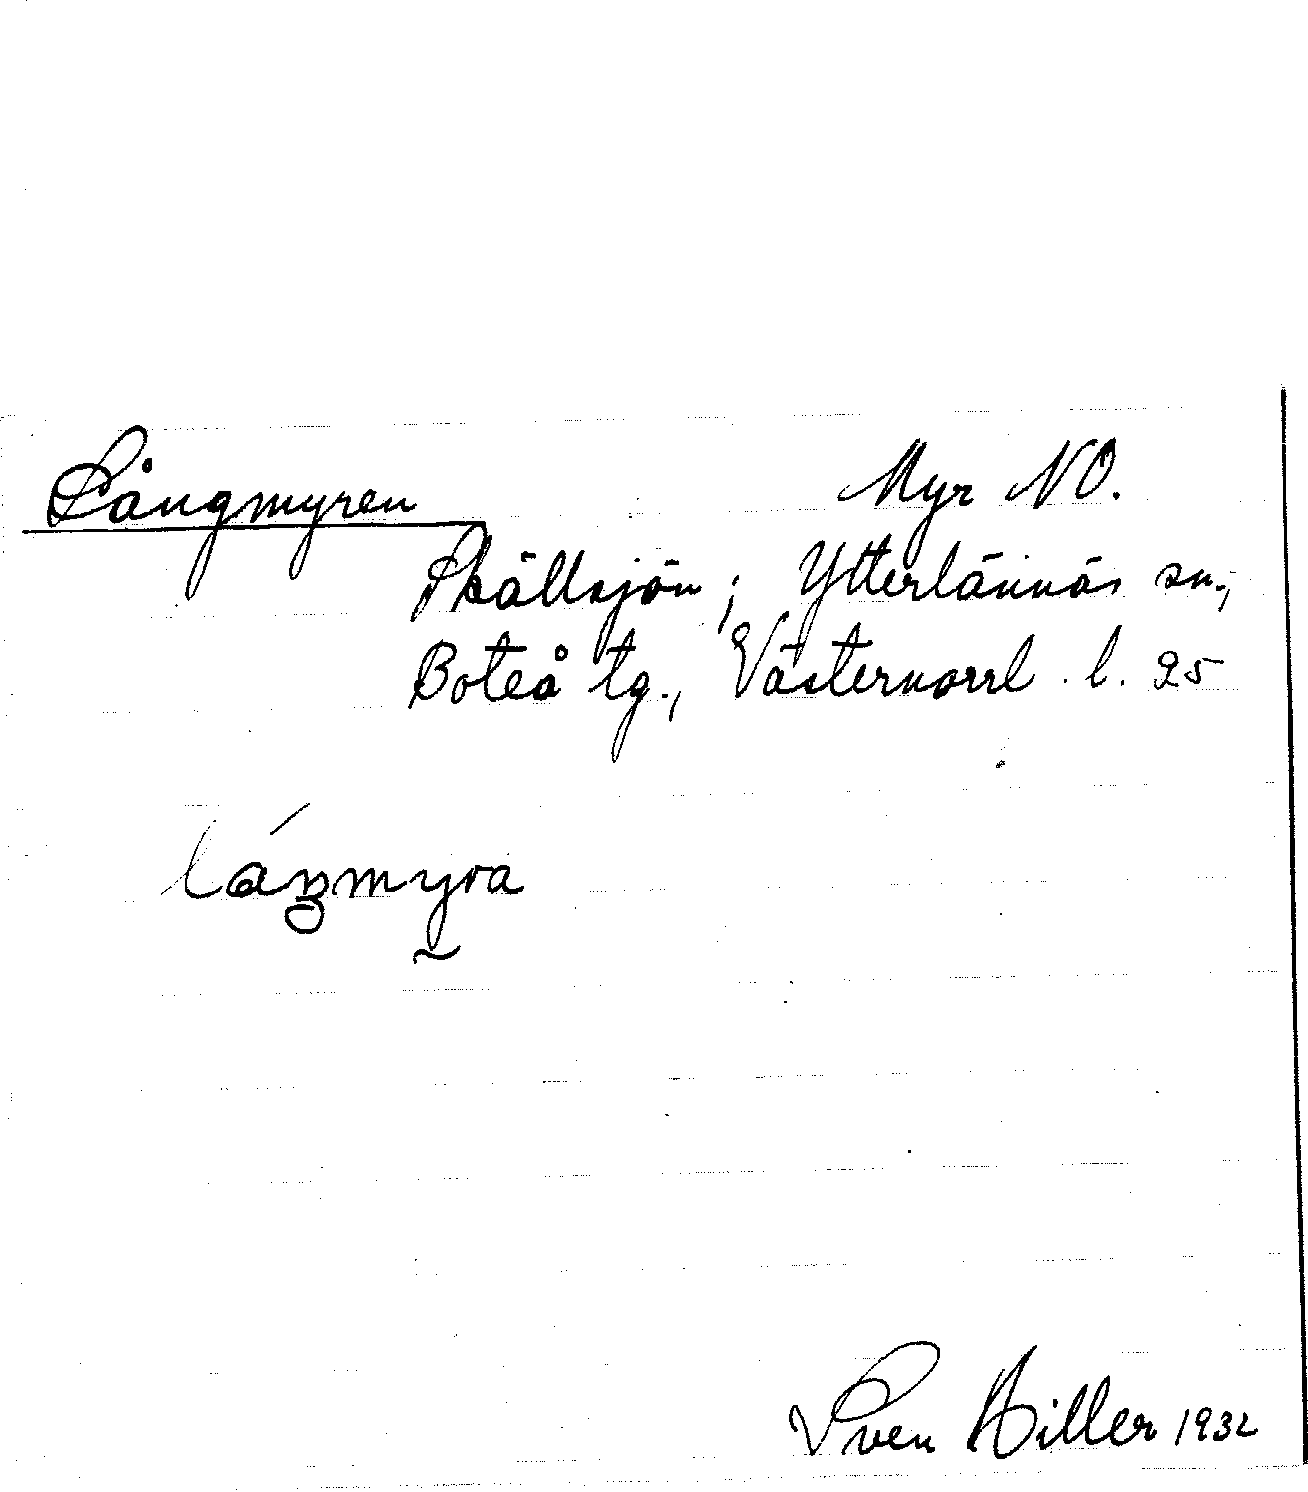 Långmyren Myr NO.
Skällsjön; Ytterlännäs sn.,
Boteå tg., Västernorrl. l. 25
lá̊ŋmyra
Sven Hiller 1932